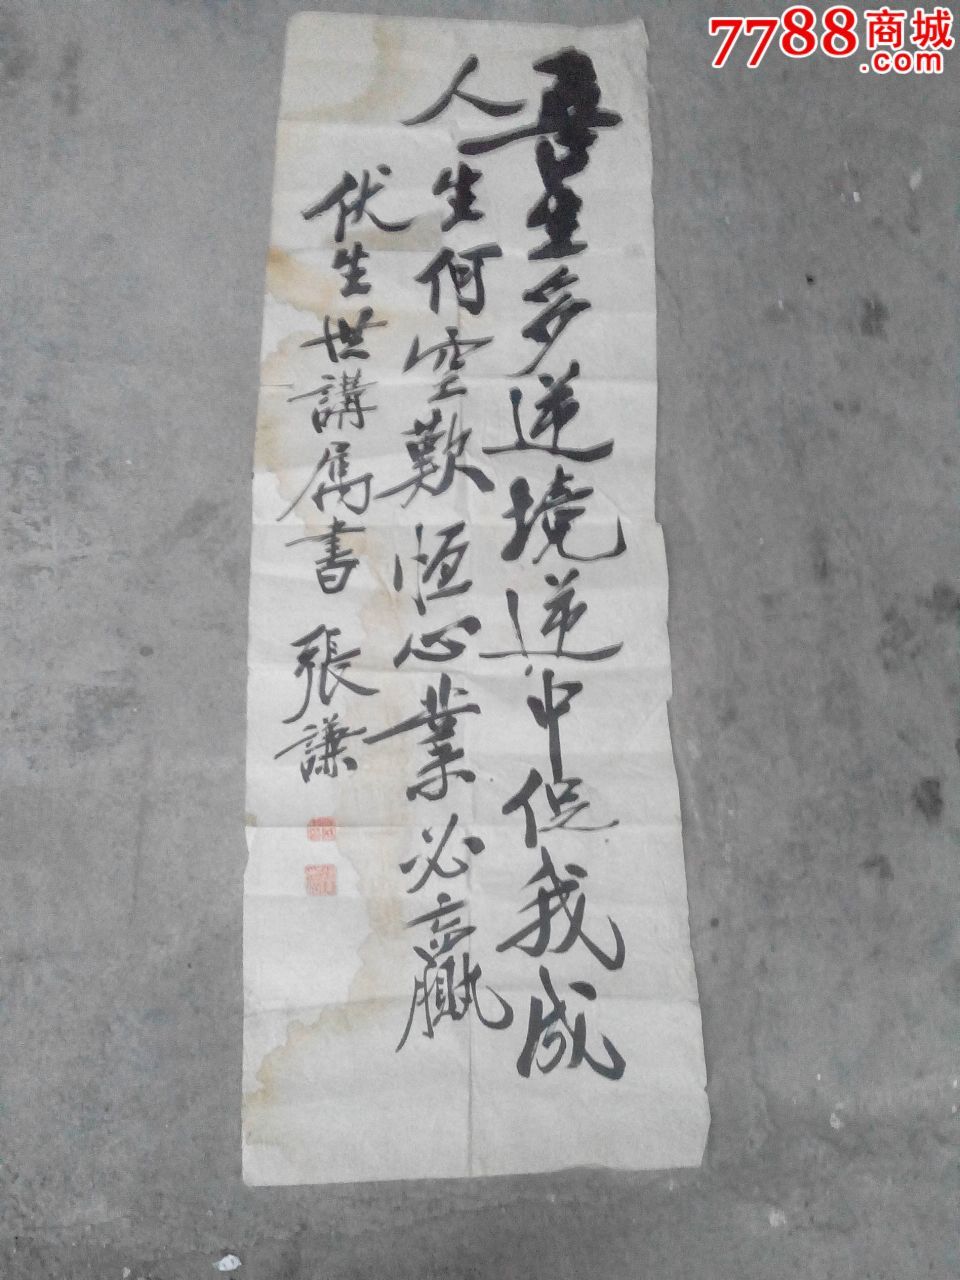 7788商城
.com
吾生多逆境逆中促我成
人生何空歎恒心業必贏
伏生世講属書 張謙